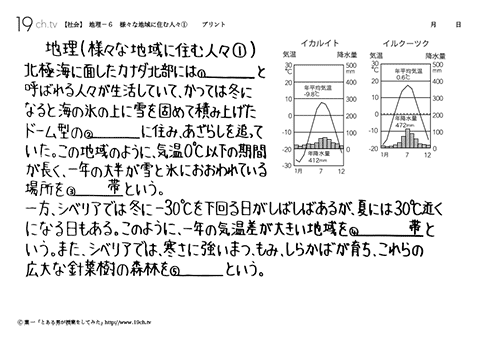 19ch.tv 【社会】 地理－6 様々な地域に住む人々① プリント 月 日
地理(様々な地域に住む人々①)
北極海に面したカナダ北部には①______と
呼ばれる人々が生活していて、かつては冬に
なると海の氷の上に雪を固めて積み上げた
ドーム型の②______に住み、あざらしを追って
いた。この地域のように、気温0℃以下の期間
が長く、一年の大半が雪と氷におおわれている
場所を③______帯という。
一方、シベリアでは冬に-30℃を下回る日がしばしばあるが、夏には30℃近く
になる日もある。このように、一年の気温差が大きい地域を④______帯と
いう。また、シベリアでは、寒さに強いまつ、もみ、しらかばが育ち、これらの
広大な針葉樹の森林を⑤______という。
イカルイト
気温 降水量
30℃ 500mm
20 400
10 300
0 200
-10 100
-20 0
-30
年平均気温
-9.8℃
年降水量
412mm
1月 7 12
イルクーツク
気温 降水量
30℃ 500mm
20 400
10 300
0 200
-10 100
-20 0
年平均気温
0.6℃
年降水量
472mm
1月 7 12
©葉一「とある男が授業をしてみた」http://www.19ch.tv